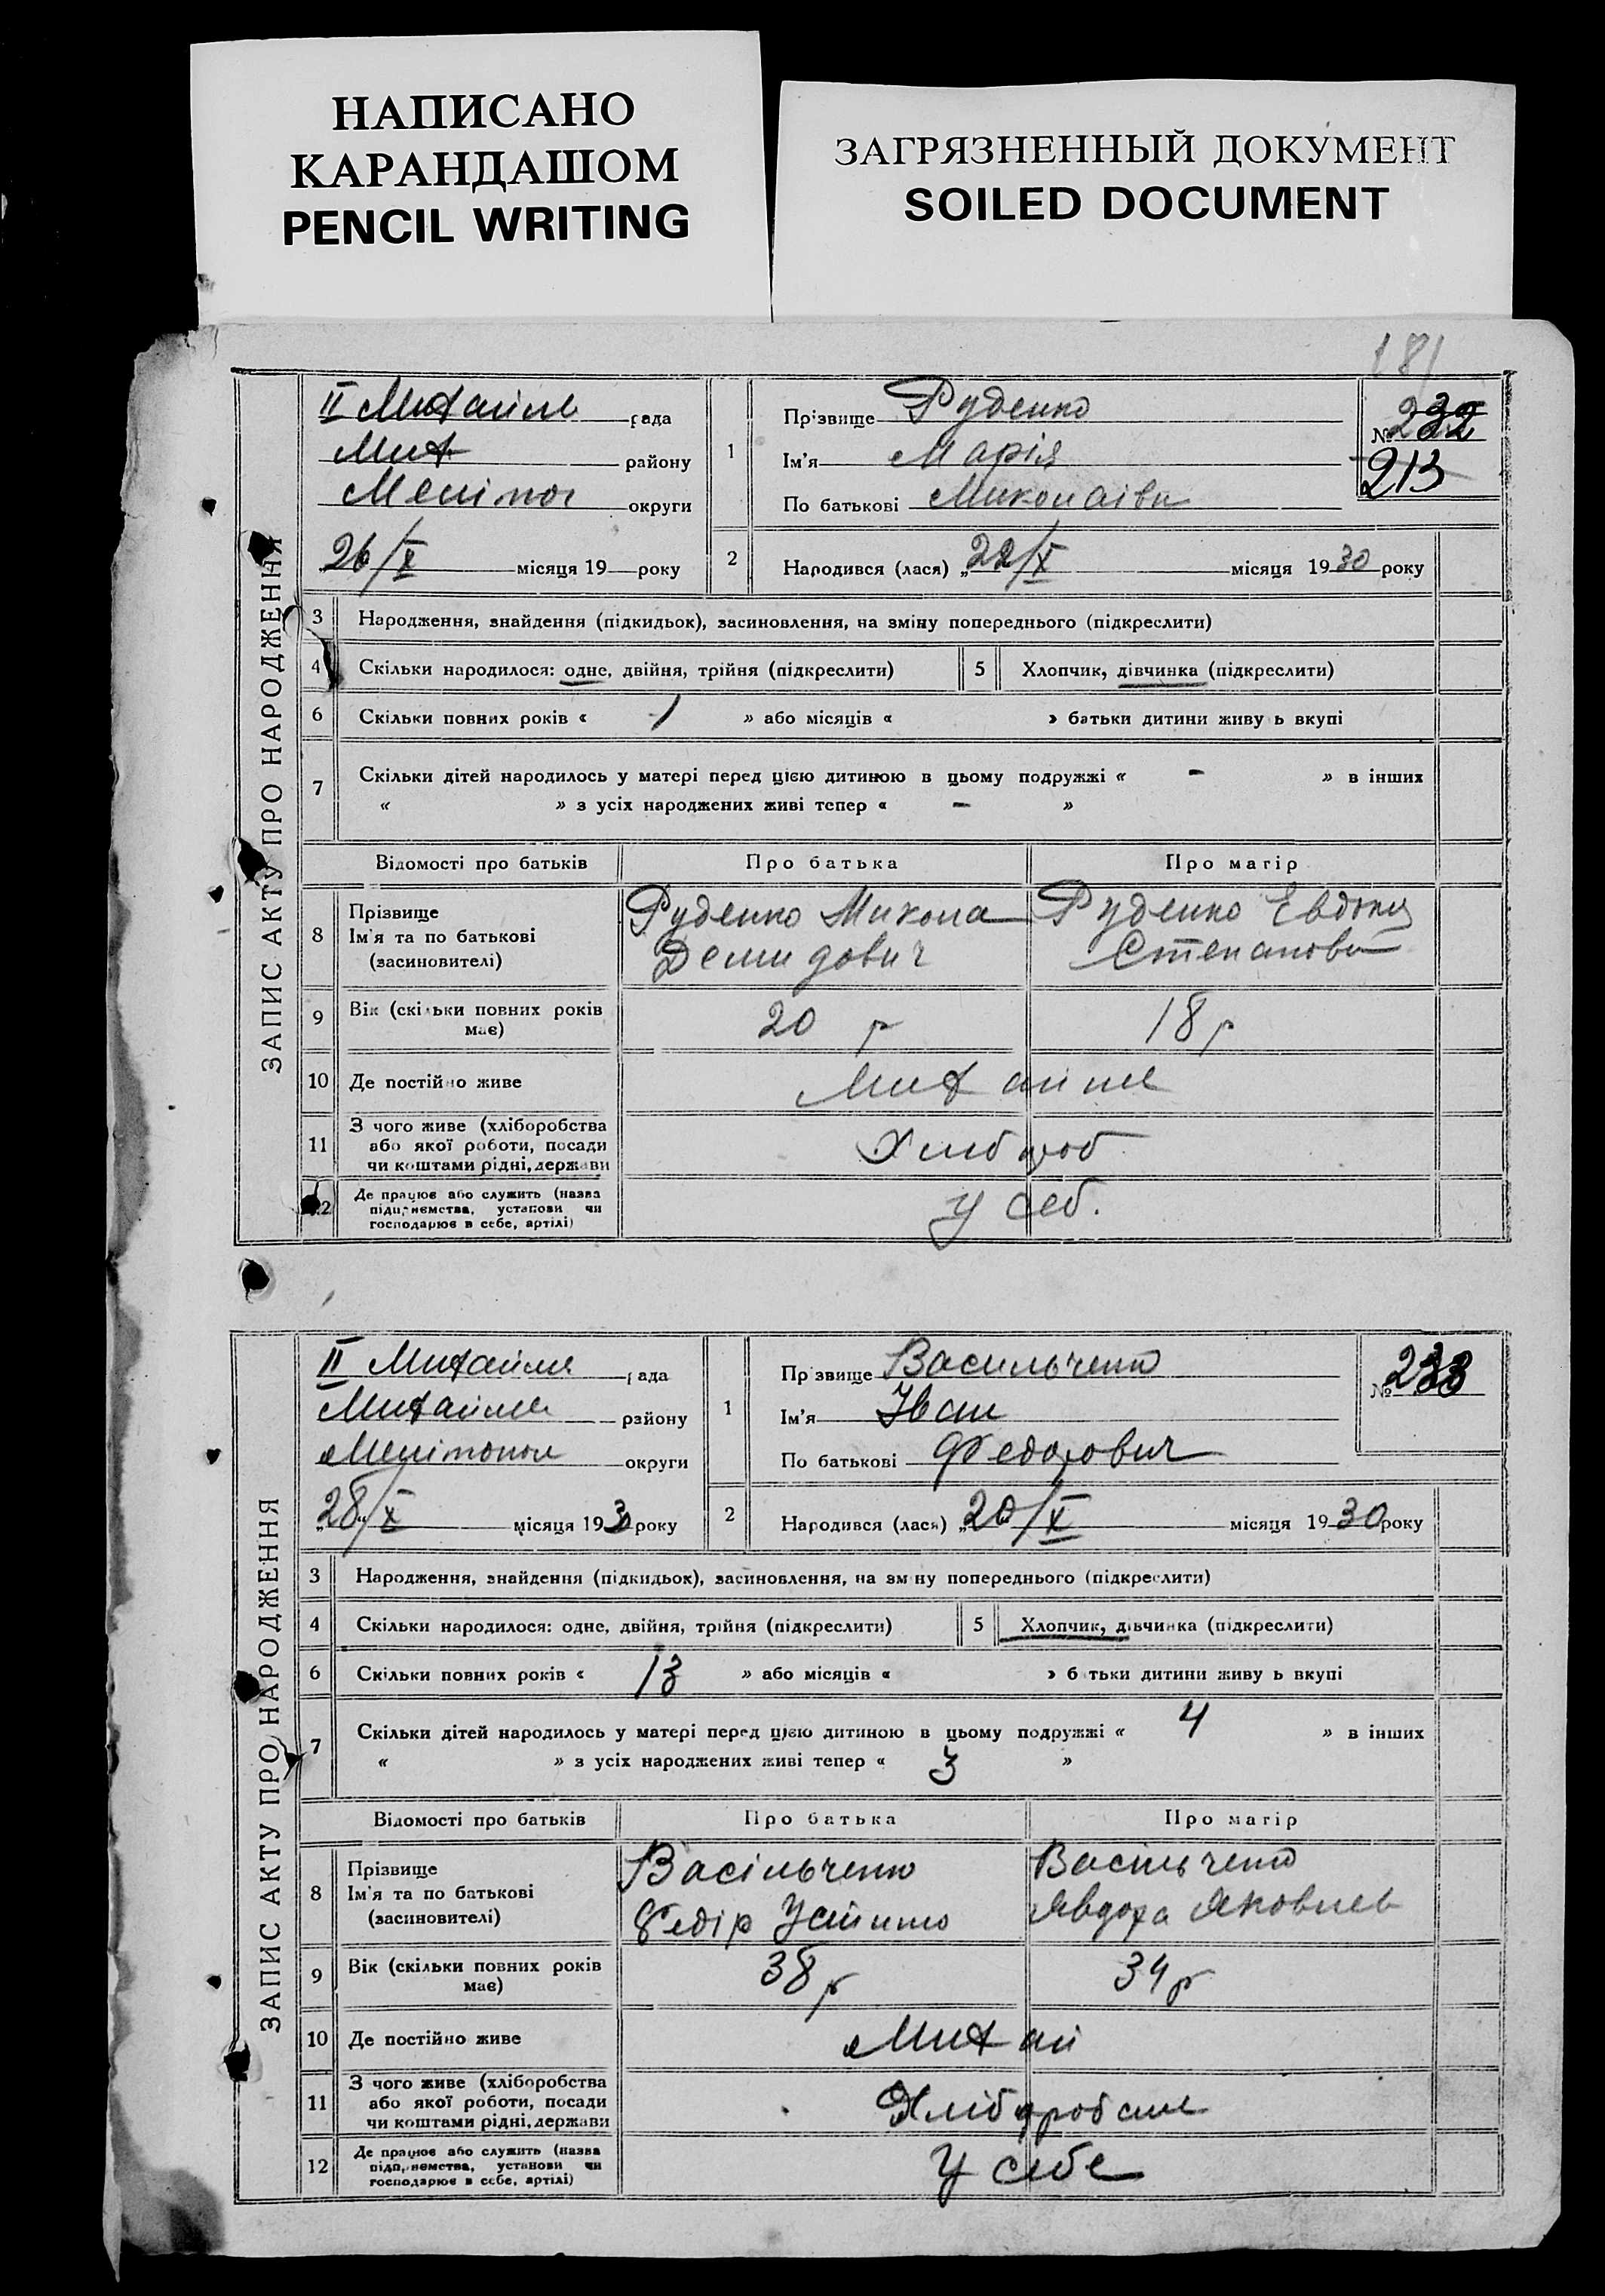 НАПИСАНО
КАРАНДАШОМ
PENCIL WRITING
ЗАГРЯЗНЕННЫЙ ДОКУМЕНТ
SOILED DOCUMENT
181
ЗАПИС АКТУ ПРО НАРОДЖЕННЯ
II Михайл рада
Мих району
Меліт округи
„26/X місяця 19 року
1
Прізвище Руденко
Ім'я Марія
По батькові Миколаівн
№ 232
213
2 Народився (лася) „22/X місяця 1930 року
3 Народження, знайдення (підкидьок), засиновлення, на зміну попереднього (підкреслити)
4 Скільки народилося: одне, двійня, трійня (підкреслити) 5 Хлопчик, дівчинка (підкреслити)
6 Скільки повних років « 1 » або місяців « » батьки дитини живу ь вкупі
7 Скільки дітей народилось у матері перед цією дитиною в цьому подружжі « - » в інших
« » з усіх народжених живі тепер « - »
Відомості про батьків Про батька Про матір
8 Прізвище
Ім'я та по батькові
(засиновителі)
Руденко Микола
Демидович
Руденко Евдокия
Степановн
9 Вік (скільки повних років
має)
20 р 18 р
10 Де постійно живе
11 З чого живе (хліборобства
або якої роботи, посади
чи коштами рідні, держави
Хлібороб
12 Де працює або служить (назва
підприємства, установи чи
господарює в себе, артілі)
у себ.
ЗАПИС АКТУ ПРО НАРОДЖЕННЯ
II Михайл рада
Михайл району
Мелітопол округи
„28/X місяця 1930 року
1
Прізвище Васильченко
Ім'я Іван
По батькові Федорович
№ 233
2 Народився (лася) „20/X місяця 1930 року
3 Народження, знайдення (підкидьок), засиновлення, на зміну попереднього (підкреслити)
4 Скільки народилося: одне, двійня, трійня (підкреслити) 5 Хлопчик, дівчинка (підкреслити)
6 Скільки повних років « 13 » або місяців « » батьки дитини живу ь вкупі
7 Скільки дітей народилось у матері перед цією дитиною в цьому подружжі « 4 » в інших
« » з усіх народжених живі тепер « 3 »
Відомості про батьків Про батька Про матір
8 Прізвище
Ім'я та по батькові
(засиновителі)
Васільченко
Федір Устимо
Васильченко
Явдоха Яковлев
9 Вік (скільки повних років
має)
38 р 34 р
10 Де постійно живе
Михай
11 З чого живе (хліборобства
або якої роботи, посади
чи коштами рідні, держави
Хлібороб
12 Де працює або служить (назва
підприємства, установи чи
господарює в себе, артілі)
У себе